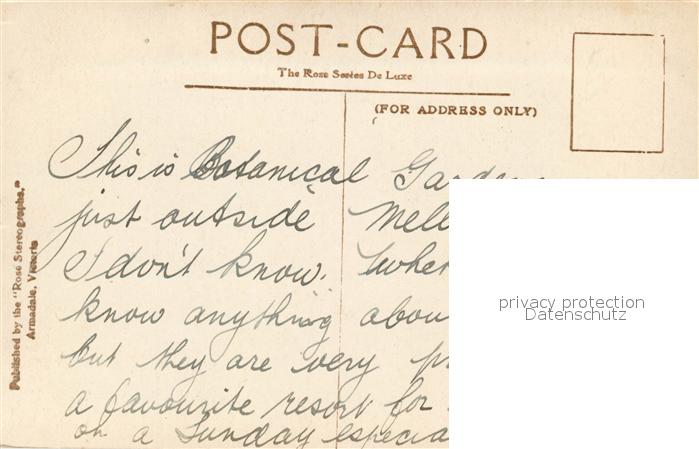 POST-CARD
The Rose Series De Luxe
(FOR ADDRESS ONLY)
Published by the "Rose Stereographs,"
Armadale, Victoria
This is Botanical
just outside
I don't know.
know anything
but they are very
a favourite resort for
on a Sunday
privacy protection
Datenschutz